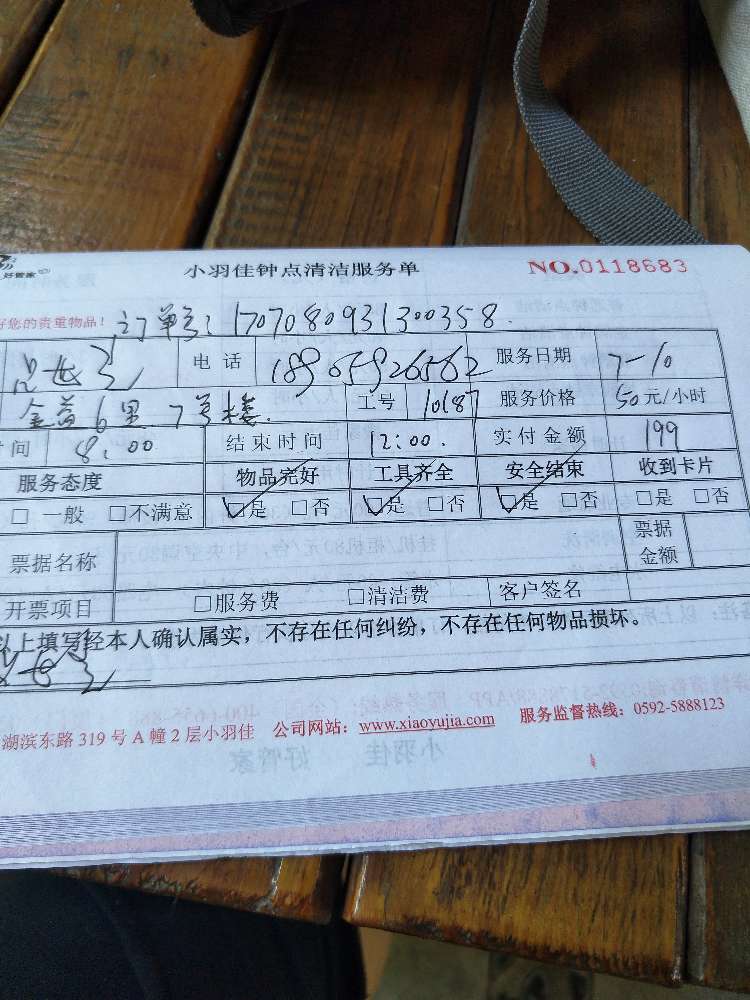 小羽佳钟点清洁服务单 NO.0118683
好管家
好您的贵重物品! 订单号:1707080931300358.
电话 18965926562 服务日期 7-10
金益6里7号楼. 工号 10187 服务价格 50元/小时
时间 8:00 结束时间 12:00. 实付金额 199
服务态度 物品完好 工具齐全 安全结束 收到卡片
□ 一般 □不满意 ☑是 □否 ☑是 □否 ☑是 □否 □是 □否
票据名称 票据金额
开票项目 □服务费 □清洁费 客户签名
以上填写经本人确认属实，不存在任何纠纷，不存在任何物品损坏。
湖滨东路319号A幢2层小羽佳 公司网站：www.xiaoyujia.com 服务监督热线：0592-5888123
小羽佳 好管家